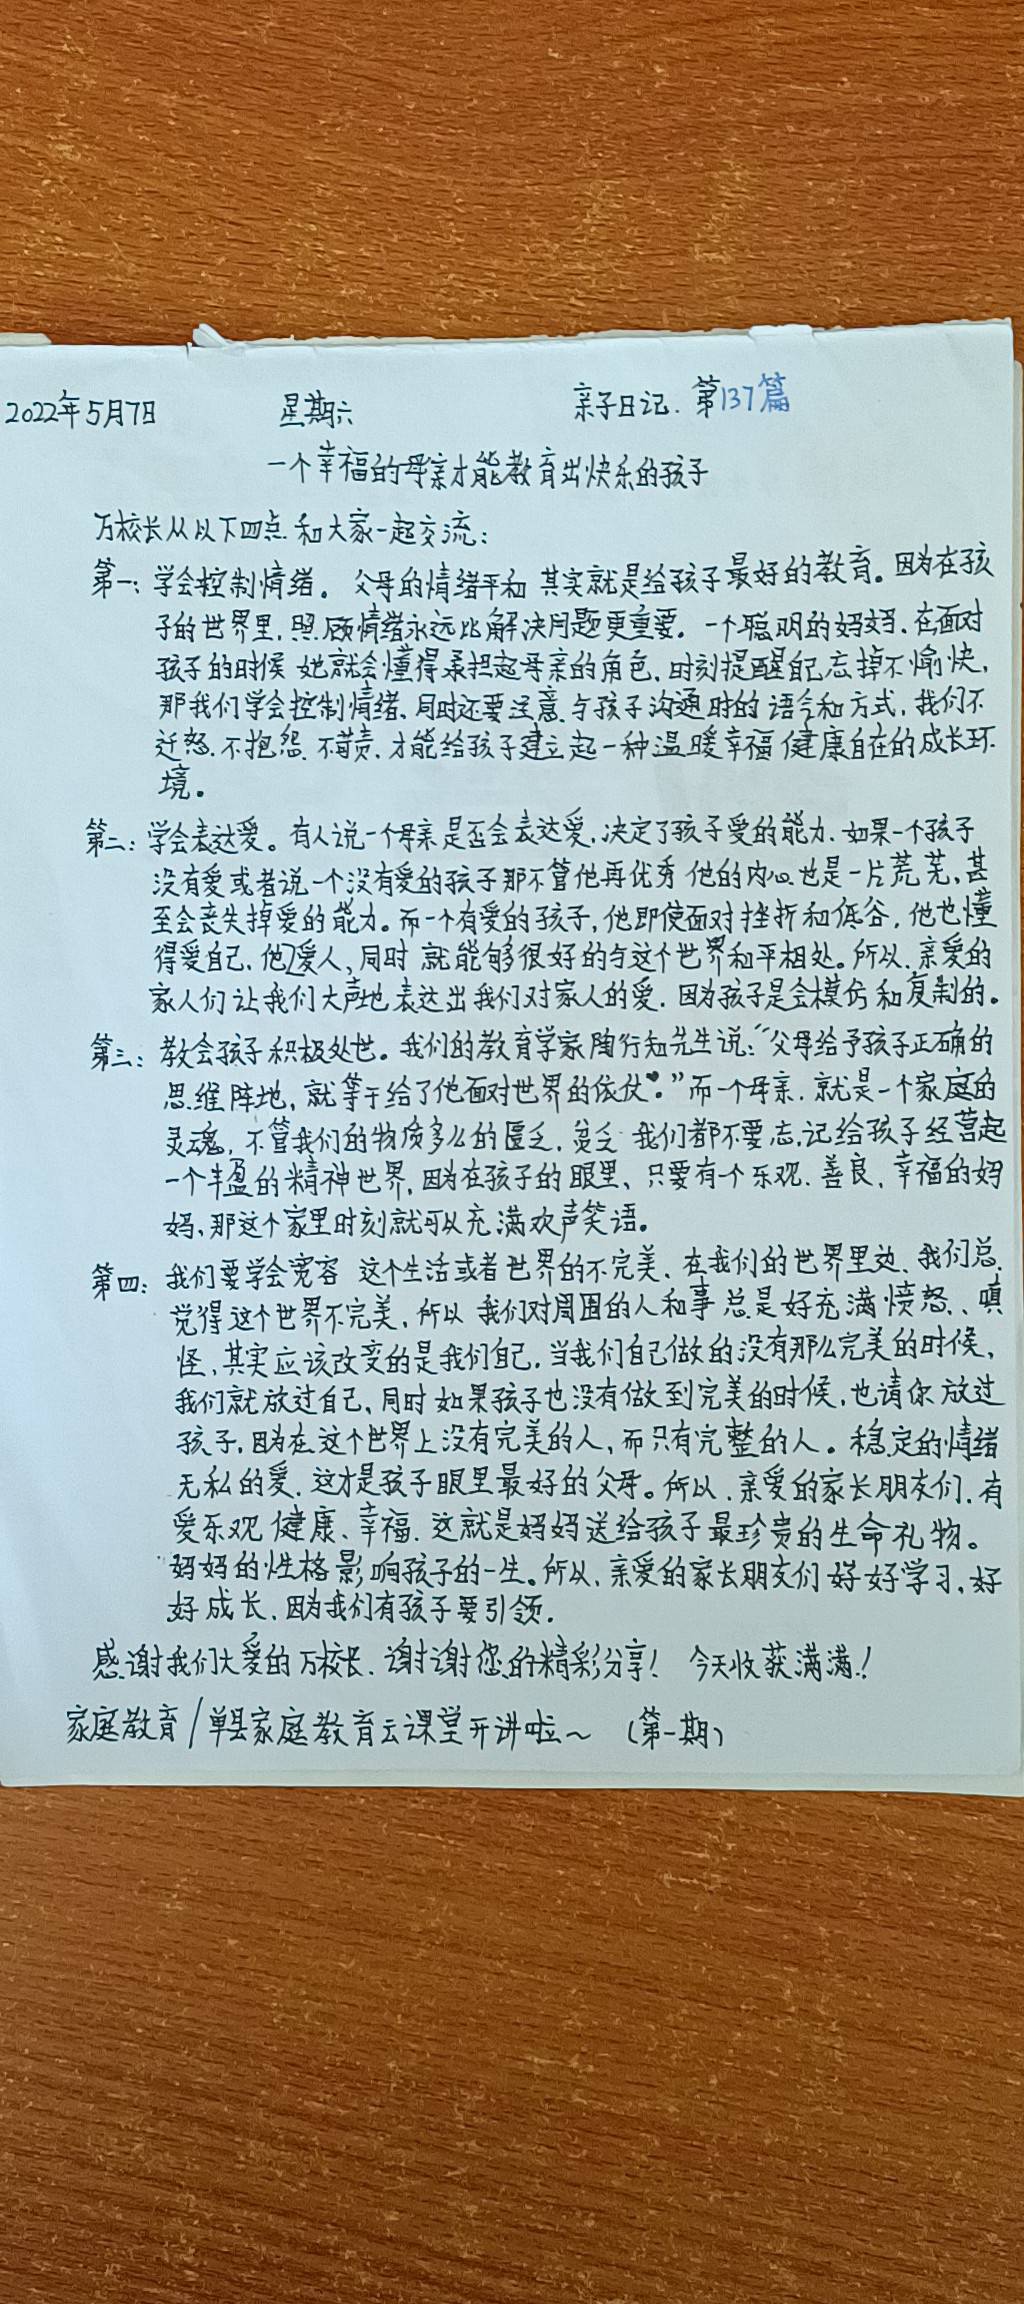 2022年5月7日 星期六 亲子日记. 第137篇
一个幸福的母亲才能教育出快乐的孩子
万校长从以下四点和大家一起交流:
第一: 学会控制情绪。父母的情绪平和 其实就是给孩子最好的教育。因为在孩
子的世界里, 照顾情绪永远比解决问题更重要. 一个聪明的妈妈、在面对
孩子的时候 她就会懂得承担起母亲的角色, 时刻提醒自己忘掉不愉快,
那我们学会控制情绪、同时还要注意与孩子沟通时的语气和方式, 我们不
迁怒、不抱怨、不苛责, 才能给孩子建立起一种温暖幸福健康自在的成长环
境。
第二: 学会表达爱。有人说一个母亲是否会表达爱, 决定了孩子爱的能力. 如果一个孩子
没有爱或者说一个没有爱的孩子那不管他再优秀他的内心也是一片荒芜, 甚
至会丧失掉爱的能力。而一个有爱的孩子, 他即使面对挫折和低谷, 他也懂
得爱自己、他爱人、同时 就能够很好的与这个世界和平相处。所以、亲爱的
家人们让我们大声地表达出我们对家人的爱. 因为孩子是会模仿和复制的。
第三: 教会孩子积极处世。我们的教育学家陶行知先生说:“父母给予孩子正确的
思维阵地, 就等于给了他面对世界的依仗。”而一个母亲. 就是一个家庭的
灵魂, 不管我们的物质多么的匮乏、贫乏 我们都不要忘记给孩子经营起
一个丰盈的精神世界, 因为在孩子的眼里、只要有一个乐观、善良、幸福的妈
妈, 那这个家里时刻就可以充满欢声笑语。
第四: 我们要学会宽容 这个生活或者世界的不完美、在我们的世界里边、我们总
觉得这个世界不完美, 所以 我们对周围的人和事总是好充满愤怒、嗔
怪, 其实应该改变的是我们自己. 当我们自己做的没有那么完美的时候,
我们就放过自己, 同时如果孩子也没有做到完美的时候, 也请你放过
孩子, 因为在这个世界上没有完美的人, 而只有完整的人。稳定的情绪
无私的爱. 这才是孩子眼里最好的父母。所以、亲爱的家长朋友们、有
爱乐观 健康、幸福. 这就是妈妈送给孩子最珍贵的生命礼物。
妈妈的性格影响孩子的一生。所以、亲爱的家长朋友们好好学习, 好
好成长、因为我们有孩子要引领.
感谢我们大爱的万校长、谢谢您的精彩分享! 今天收获满满!
家庭教育/单县家庭教育云课堂开讲啦~ (第一期)